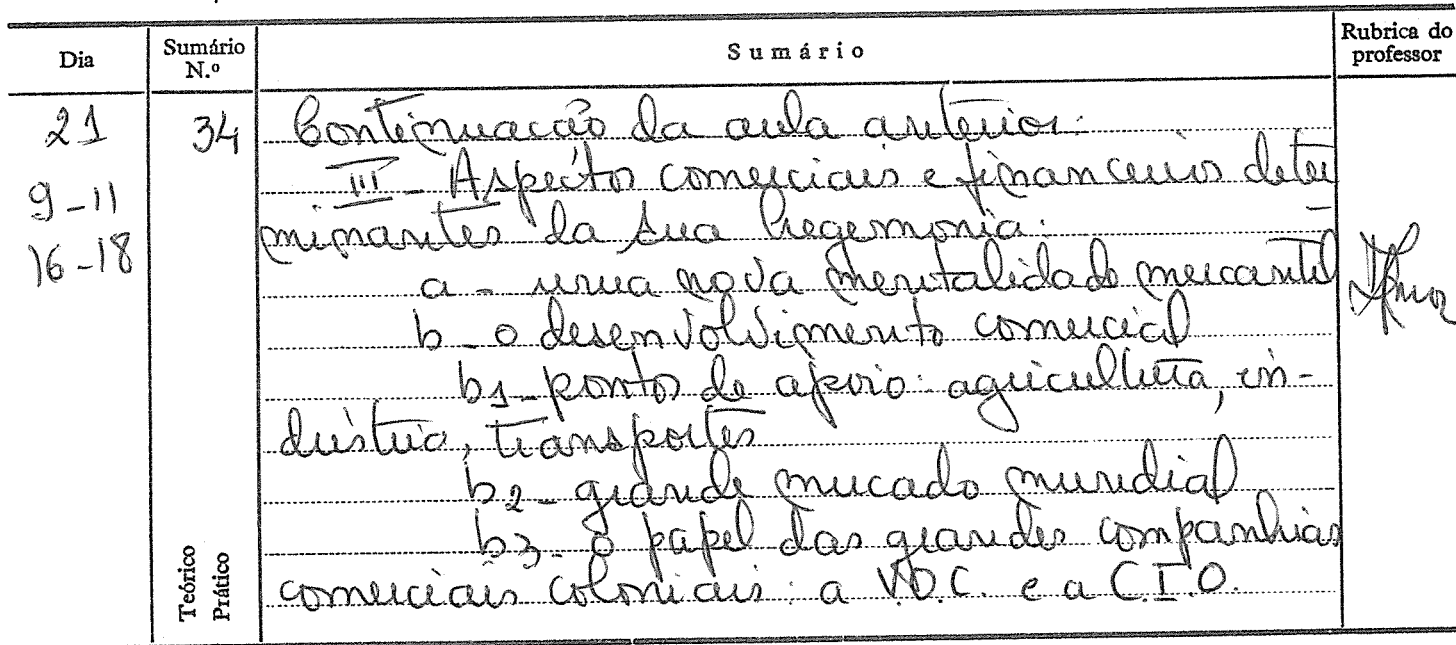 Dia Sumário N.º Sumário Rubrica do professor
21 34 Continuação da aula anterior:
III - Aspectos comerciais e financeiros deter
9-11 minantes da sua hegemonia:
16-18 a - uma nova mentalidade mercantil
b - o desenvolvimento comercial
b1 - pontos de apoio: agricultura, in-
dústria, transportes
b2 - grande mercado mundial
b3 - o papel das grandes companhias
Teórico Prático comerciais coloniais: a V.O.C. e a C.I.O.